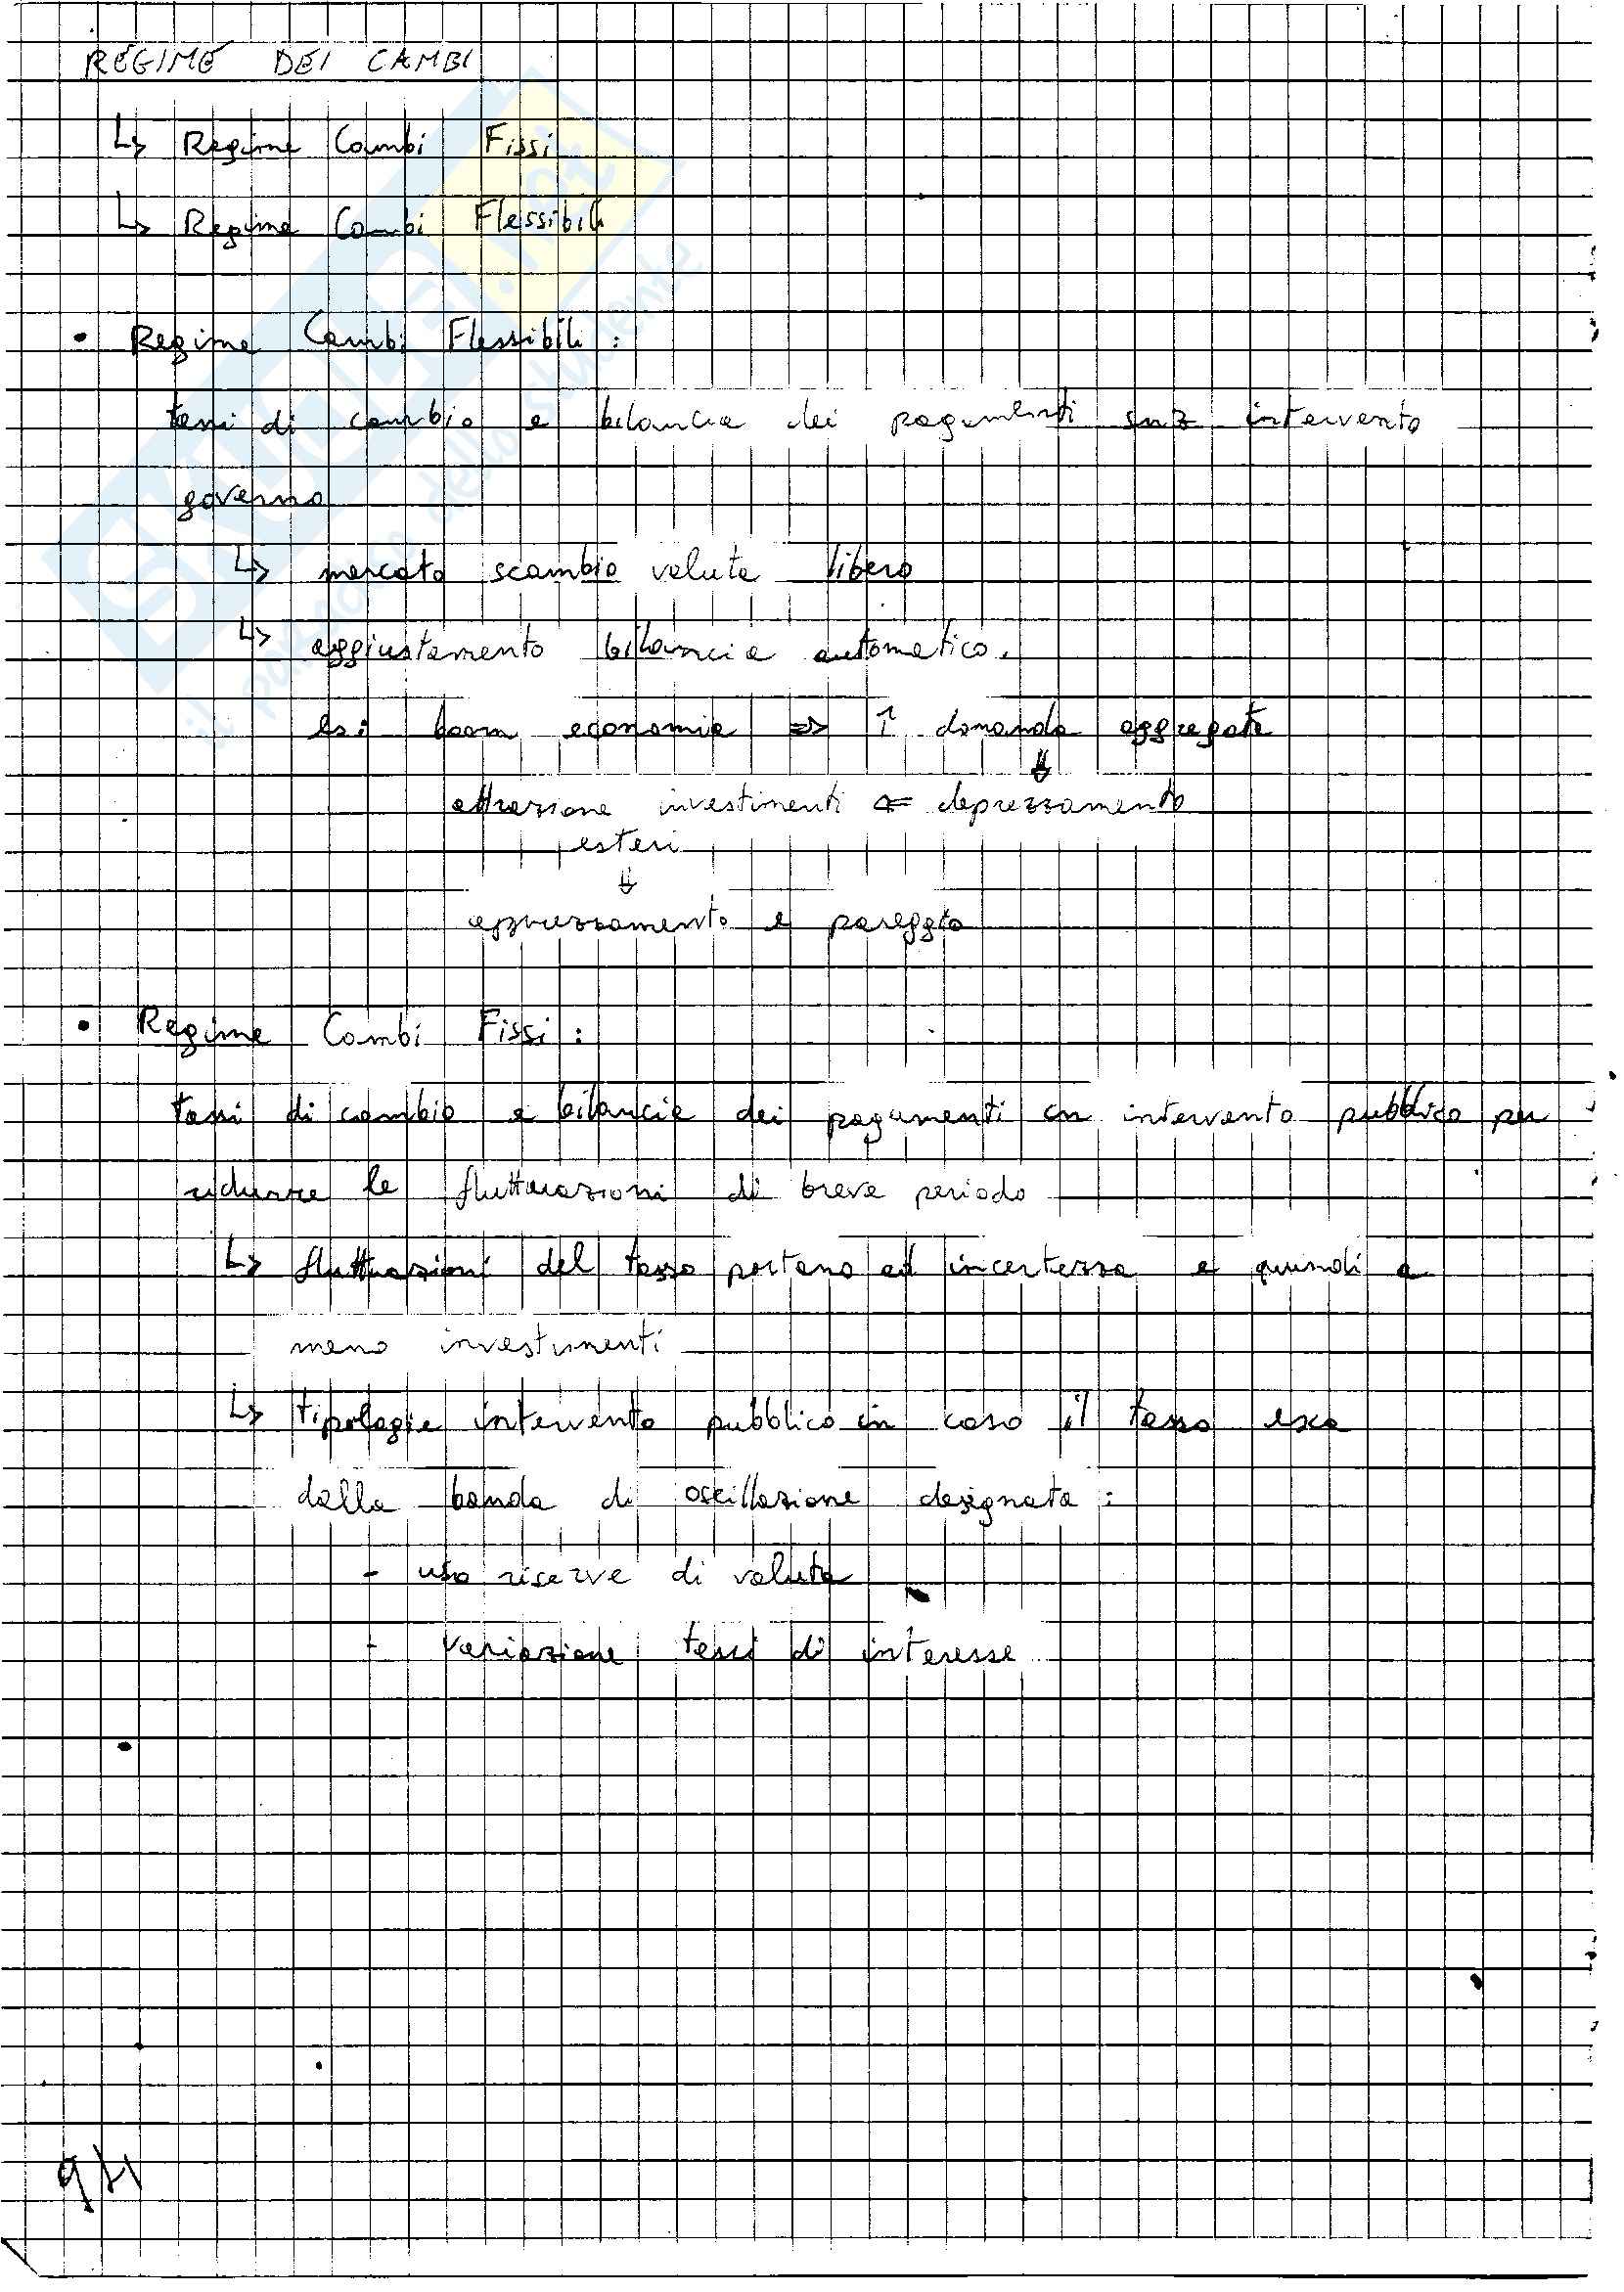 REGIME DEI CAMBI
↳ Regime Cambi Fissi
↳ Regime Cambi Flessibili
• Regime Cambi Flessibili :
tassi di cambio e bilancia dei pagamenti senz intervento
governo
↳ mercato scambio valute libero
↳ aggiustamento bilancia automatico.
es: boom economia ⇒ ↑ domanda aggregata
⇓
attrazione investimenti ⇐ deprezzamento
esteri
⇓
apprezzamento e pareggio
• Regime Cambi Fissi :
tassi di cambio e bilancia dei pagamenti con intervento pubblico per
ridurre le fluttuazioni di breve periodo
↳ fluttuazioni del tasso portano ad incertezza e quindi a
meno investimenti
↳ tipologie intervento pubblico in caso il tasso esca
dalla banda di oscillazione designata :
- uso riserve di valuta
- variazione tassi di interesse
SKUOLA.net
il paradiso dello studente